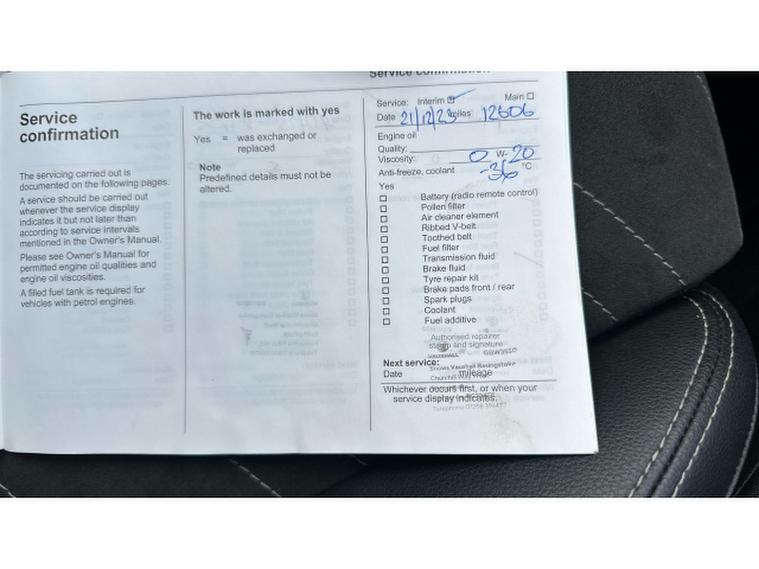 Service confirmation
Service
confirmation
The servicing carried out is
documented on the following pages.
A service should be carried out
whenever the service display
indicates it but not later than
according to service intervals
mentioned in the Owner's Manual.
Please see Owner's Manual for
permitted engine oil qualities and
engine oil viscosities.
A filled fuel tank is required for
vehicles with petrol engines.
The work is marked with yes
Yes = was exchanged or
replaced
Note
Predefined details must not be
altered.
Service: Interim Main
Date 21/12/23 miles 12606
Engine oil
Quality:
Viscosity: 0 W- 20
Anti-freeze, coolant -36 °C
Yes
Battery (radio remote control)
Pollen filter
Air cleaner element
Ribbed V-belt
Toothed belt
Fuel filter
Transmission fluid
Brake fluid
Tyre repair kit
Brake pads front / rear
Spark plugs
Coolant
Fuel additive
Authorised repairer
stamp and signature
Next service:
Snows Vauxhall Basingstoke
Date mileage
Churchill Way West
Whichever occurs first, or when your
service display indicates.
Telephone